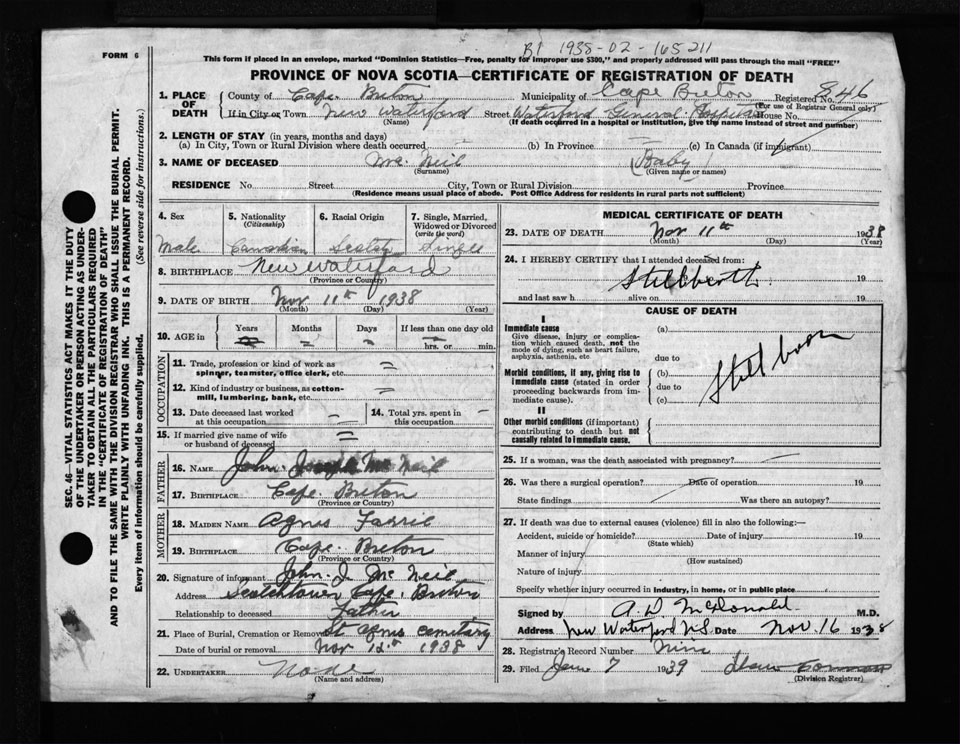 FORM 6
B1 1938-02-165211
This form if placed in an envelope, marked "Dominion Statistics—Free, penalty for improper use $300," and properly addressed will pass through the mail "FREE"
PROVINCE OF NOVA SCOTIA—CERTIFICATE OF REGISTRATION OF DEATH
SEC. 46—VITAL STATISTICS ACT MAKES IT THE DUTY
OF THE UNDERTAKER OR PERSON ACTING AS UNDER-
TAKER TO OBTAIN ALL THE PARTICULARS REQUIRED
IN THE "CERTIFICATE OF REGISTRATION OF DEATH"
AND TO FILE THE SAME WITH THE DIVISION REGISTRAR WHO SHALL ISSUE THE BURIAL PERMIT.
WRITE PLAINLY WITH UNFADING INK. THIS IS A PERMANENT RECORD.
Every item of information should be carefully supplied. (See reverse side for instructions.)
1. PLACE OF DEATH
County of Cape Breton Municipality of Cape Breton Registered No. 846
(For use of Registrar General only)
If in City or Town New Waterford Street Waterford General Hospital House No.
(Name) (If death occurred in a hospital or institution, give the name instead of street and number)
2. LENGTH OF STAY (in years, months and days)
(a) In City, Town or Rural Division where death occurred (b) In Province (c) In Canada (if immigrant)
3. NAME OF DECEASED Mc Neil (Baby)
(Surname) (Given name or names)
RESIDENCE No. Street City, Town or Rural Division Province
(Residence means usual place of abode. Post Office Address for residents in rural parts not sufficient)
4. Sex 5. Nationality (Citizenship) 6. Racial Origin 7. Single, Married, Widowed or Divorced (write the word)
Male Canadian Scotch Single
8. BIRTHPLACE New Waterford
(Province or Country)
9. DATE OF BIRTH Nov 11th 1938
(Month) (Day) (Year)
10. AGE in Years Months Days If less than one day old
hrs. or min.
OCCUPATION
11. Trade, profession or kind of work as spinner, teamster, office clerk, etc. =
12. Kind of industry or business, as cotton-mill, lumbering, bank, etc. =
13. Date deceased last worked at this occupation – 14. Total yrs. spent in this occupation –
15. If married give name of wife or husband of deceased =
FATHER
16. NAME John Joseph Mc Neil
17. BIRTHPLACE Cape Breton
(Province or Country)
MOTHER
18. MAIDEN NAME Agnis
19. BIRTHPLACE Cape Breton
(Province or Country)
20. Signature of informant John J. Mc Neil
Address Scotchtown Cape Breton
Relationship to deceased Father
21. Place of Burial, Cremation or Removal St Agnis Cemitary
Date of burial or removal Nov 12th 1938
22. UNDERTAKER
(Name and address)
MEDICAL CERTIFICATE OF DEATH
23. DATE OF DEATH Nov 11th 1938
(Month) (Day) (Year)
24. I HEREBY CERTIFY that I attended deceased from:
Stillbirth 19
and last saw h alive on 19
CAUSE OF DEATH
I
Immediate cause
Give disease, injury or complication which caused death, not the mode of dying, such as heart failure, asphyxia, asthenia, etc.
(a)
due to
Morbid conditions, if any, giving rise to immediate cause (stated in order proceeding backwards from immediate cause).
(b)
due to
(c)
Stillborn
II
Other morbid conditions (if important) contributing to death but not causally related to immediate cause.
25. If a woman, was the death associated with pregnancy?
26. Was there a surgical operation? Date of operation 19
State findings Was there an autopsy?
27. If death was due to external causes (violence) fill in also the following:—
Accident, suicide or homicide? Date of injury 19
(State which)
Manner of injury
(How sustained)
Nature of injury
Specify whether injury occurred in industry, in home, or in public place
Signed by A. D. McDonald. M.D.
Address New Waterford N.S. Date Nov. 16 1938
28. Registrar's Record Number Nine
29. Filed June 7 1939
(Division Registrar)